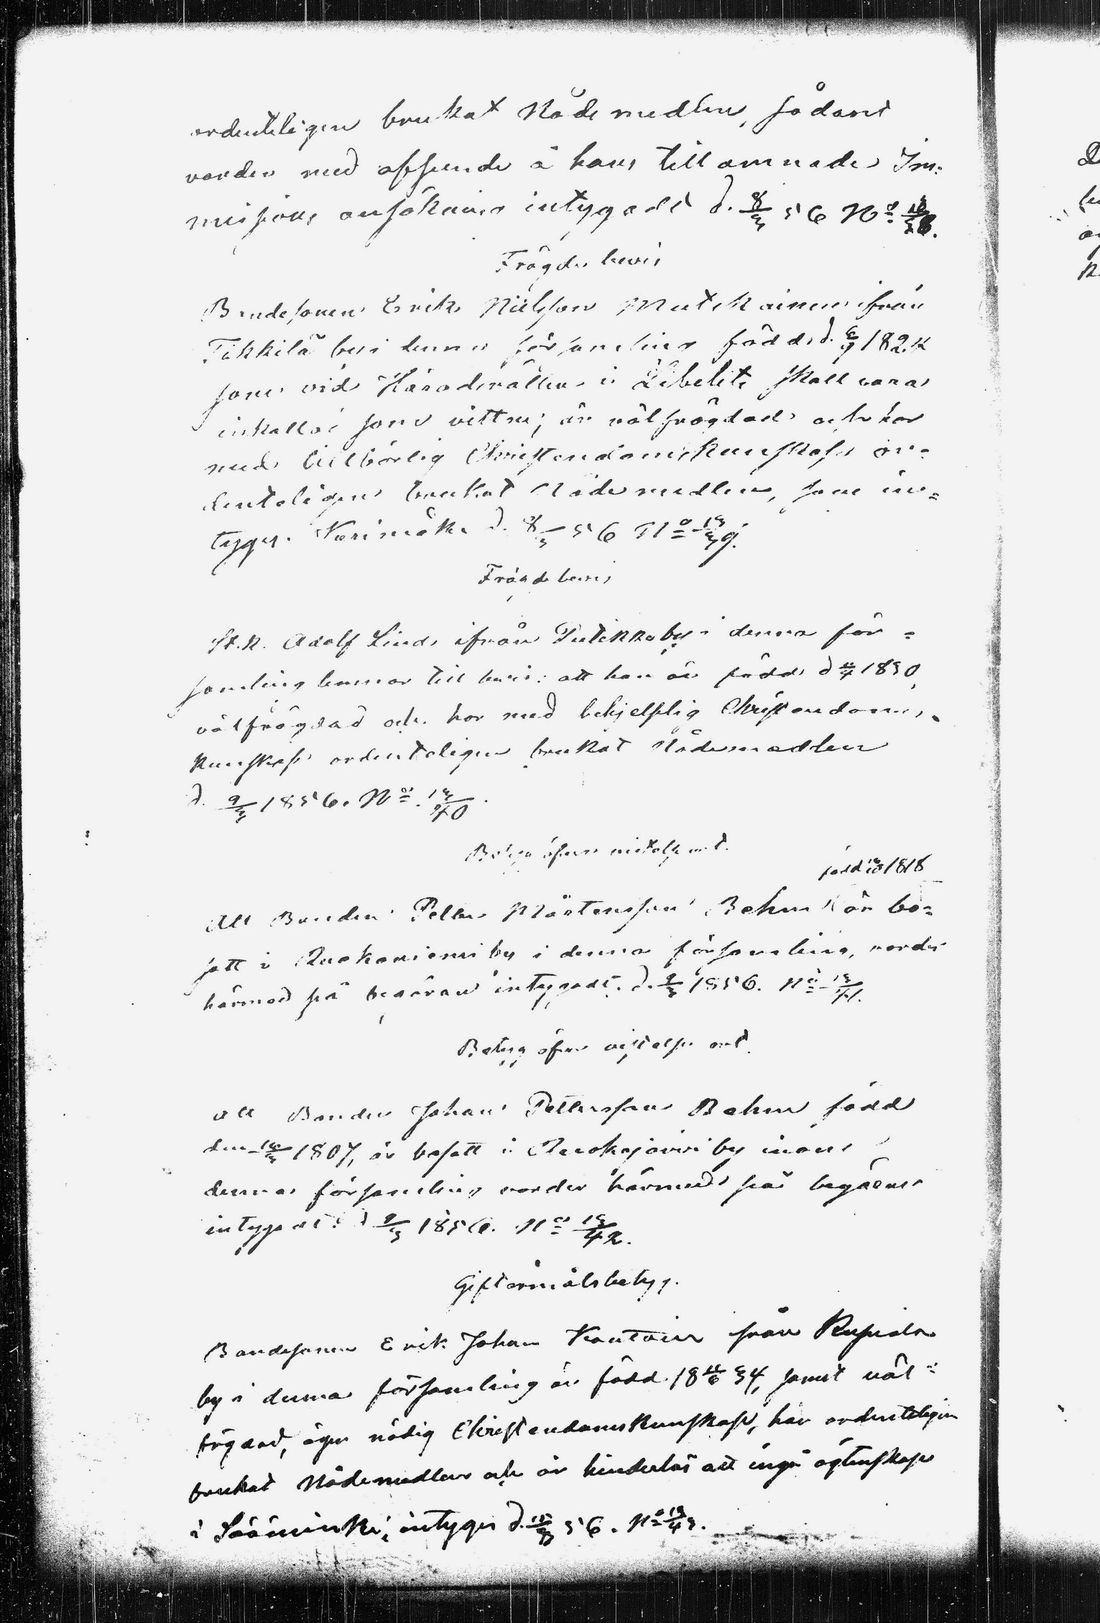 ordenteligen brukat Nådemedlen, sådant
varder med afseende å hans tillämnade Im-
missions ansökning intygadt d. 8/3 56 No
Frägde bevis
Bondesonen Erik Nielsson Mutikainen ifrån
Tikkilä by i denna församling född d. 6/9 1824
som vid Häradsrätten i Libelits skall vara
inkallad som vittne; är välfrägdad och har
med tillbörlig Christendomskunskap or-
denteligen brukat Nådemedlen, som in-
tygas. Kerimäki d. 8/3 56 No 13/39.
Frägdebevis
St.k. Adolf Lind ifrån Putikko by i denna för-
samling lemnas till bevis: att han är född d 1830,
välfrägdad och har med behjelplig Christendoms-
kunskap ordenteligen brukat Nådemedlen
d. 9/3 1856. No 13/40.
Betyg öfver vistelse ort.
född 1818
Att Bonden Petter Mårtensson Behm är bo-
satt i Ruokoniemi by i denna församling, varder
härmed på begäran intygadt. d. 9/3 1856. No 13/41.
Betyg öfver vistelse ort.
Att Bonden Johan Pettersson Behm född
den 1807, är bosatt i by inom
denna församling varder härmed på begäran
intygadt: d 9/3 1856. No 13/42.
Giftermålsbetyg.
Bondesonen Erik Johan från
by i denna församling är född 18 34, samt väl-
frägdad, äger nödig Christendomskunskap, har ordenteligen
brukat Nådemedlen och är hinderlös att ingå ägtenskap
i Sääminki; intygas d. 56. No 13/43.